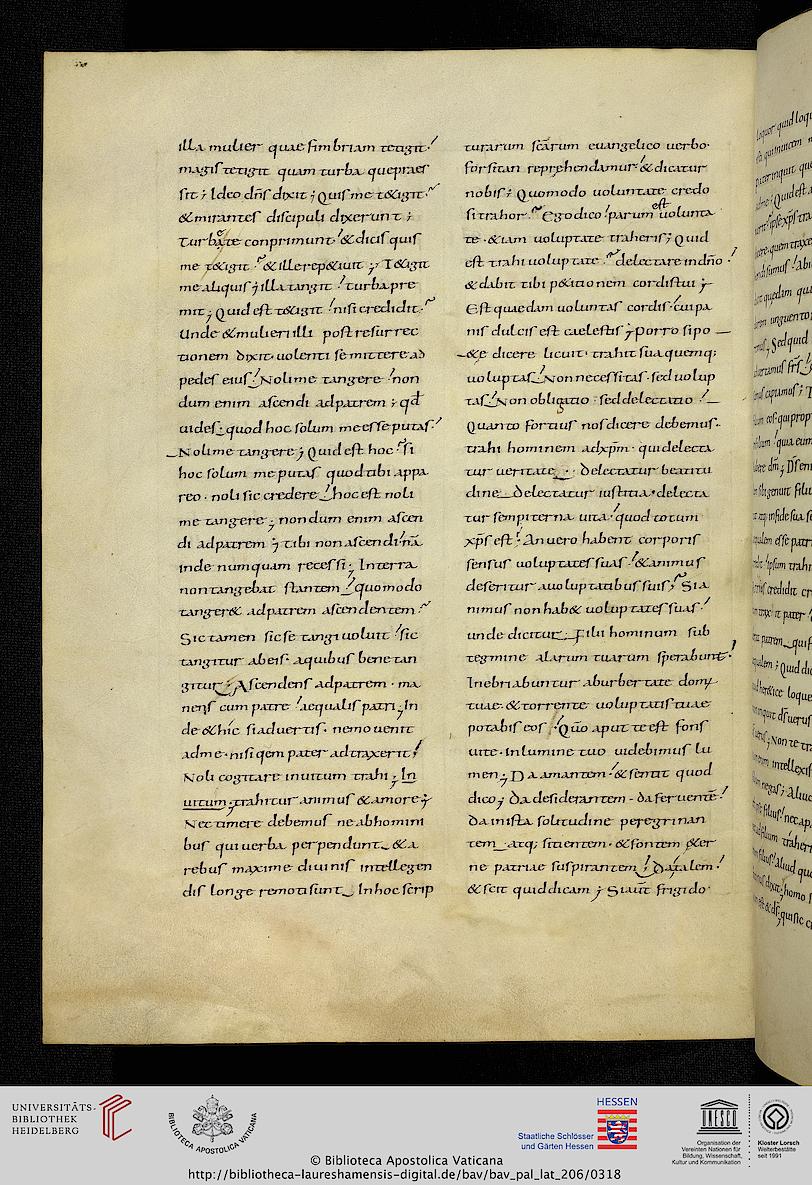 illa mulier quae fimbriam tetigit
magis tetigit quam turba quepraes
sit; Ideo dn̄s dixit; Quis me t&igit
& mirantes discipuli dixerunt;
Turbae te conprimunt & dicis quis
me t&igit & ille rep&iuit; T&igit
me aliquis; illa tangit turba pre
mit; Quid est t&igit nisi credidit
Unde & mulieri illi post resurrec
tionem dixit uolenti se mittere ad
pedes eius Noli me tangere non
dum enim ascendi ad patrem; qd̄
uides quod hoc solum me esse putas
Noli me tangere; Quid est hoc si
hoc solum me putas quod tibi appa
reo · noli sic credere hoc est noli
me tangere; nondum enim ascen
di ad patrem; tibi non ascendi nā
inde numquam recessi; In terra
non tangebat stantem quomodo
tanger& ad patrem ascendentem
Sic tamen sic se tangi uoluit sic
tangitur ab eis · a quibus bene tan
gitur; Ascendens ad patrem · ma
nens cum patre aequalis patri; In
de & hic si aduertis · nemo uenit
ad me · nisi qem pater adtraxerit
Noli cogitare inuitum trahi; In
uitum; trahitur animus & amore;
Nec timere debemus ne ab homini
bus qui uerba perpendunt & a
rebus maxime diuinis intellegen
dis longe remoti sunt In hoc scrip
turarum sc̄arum euangelico uerbo·
forsitan reprehendamur & dicatur
nobis; Quomodo uoluntate credo
si trahor Ego dico parum est uolunta
te · &iam uoluptate traheris; Quid
est trahi uoluptate delectare in dn̄o
& dabit tibi p&itionem cordis tui;
Est quaedam uoluntas cordis cui pa
nis dulcis est caelestis; Porro si po
&e dicere licuit trahit sua quemq;
uoluptas Non necessitas · sed uolup
tas Non obligatio · sed delectatio
Quanto fortius nos dicere debemus
trahi hominem ad xp̄m · qui delecta
tur ueritate · delectatur beatitu
dine delectatur iustitia · delecta
tur sempiterna uita quod totum
xp̄s est An uero habent corporis
sensus uoluptates suas & animus
deseritur a uoluptatibus suis; Si a
nimus non hab& uoluptates suas
unde dicitur Filii hominum sub
tegmine alarum tuarum sperabunt
Inebriabuntur ab urbertate dom;
tuae · & torrente uoluptatis tuae
potabis eos Quō aput te est fons
uite · In lumine tuo uidebimus lu
men; Da amantem & sentit quod
dico; Da desiderantem · da feruentē
Da in ista solitudine peregrinan
tem atq; sitientem · & fontem &er
ne patriae suspirantem; Da talem
& scit quid dicam; Si aut̄ frigido·
UNIVERSITÄTS-
BIBLIOTHEK
HEIDELBERG
BIBLIOTHECA APOSTOLICA VATICANA
HESSEN
Staatliche Schlösser
und Gärten Hessen
UNESCO
Organisation der
Vereinten Nationen für
Bildung, Wissenschaft,
Kultur und Kommunikation
Kloster Lorsch
Welterbestätte
seit 1991
© Biblioteca Apostolica Vaticana
http://bibliotheca-laureshamensis-digital.de/bav/bav_pal_lat_206/0318